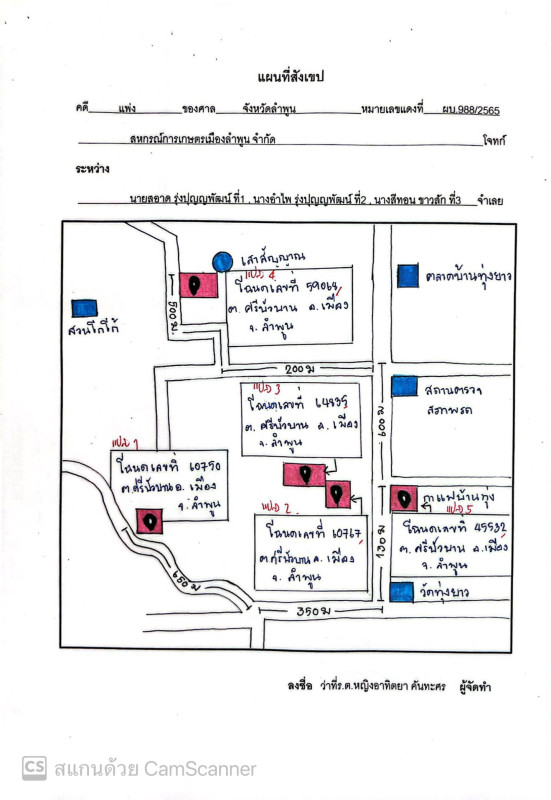 แผนที่สังเขป
คดี แพ่ง ของศาล จังหวัดลำพูน หมายเลขแดงที่ ผบ.988/2565
สหกรณ์การเกษตรเมืองลำพูน จำกัด โจทก์
ระหว่าง
นายสอาด รุ่งปุญญพัฒน์ ที่1 , นางอำไพ รุ่งปุญญพัฒน์ ที่2 , นางสีทอน ขาวสัก ที่3 จำเลย
เสาสัญญาณ
แปลง 4
โฉนดเลขที่ 59064
ต. ศรีบัวบาน อ. เมือง
จ. ลำพูน
500 ม.
ตลาดบ้านทุ่งยาว
สวนโกโก้
200 ม
แปลง 3
โฉนดเลขที่ 64835
ต. ศรีบัวบาน อ. เมือง
จ. ลำพูน
600 ม
สถานตรวจ
สภาพรถ
แปลง 1
โฉนดเลขที่ 60750
ต.ศรีบัวบาน อ. เมือง
จ. ลำพูน
แปลง 2
โฉนดเลขที่ 60767
ต.ศรีบัวบาน อ. เมือง
จ. ลำพูน
130 ม
กาแฟบ้านทุ่ง
แปลง 5
โฉนดเลขที่ 45532
ต. ศรีบัวบาน อ.เมือง
จ. ลำพูน
วัดทุ่งยาว
650 ม
350 ม
ลงชื่อ ว่าที่ร.ต.หญิงอาทิตยา คันทะศร ผู้จัดทำ
CS สแกนด้วย CamScanner